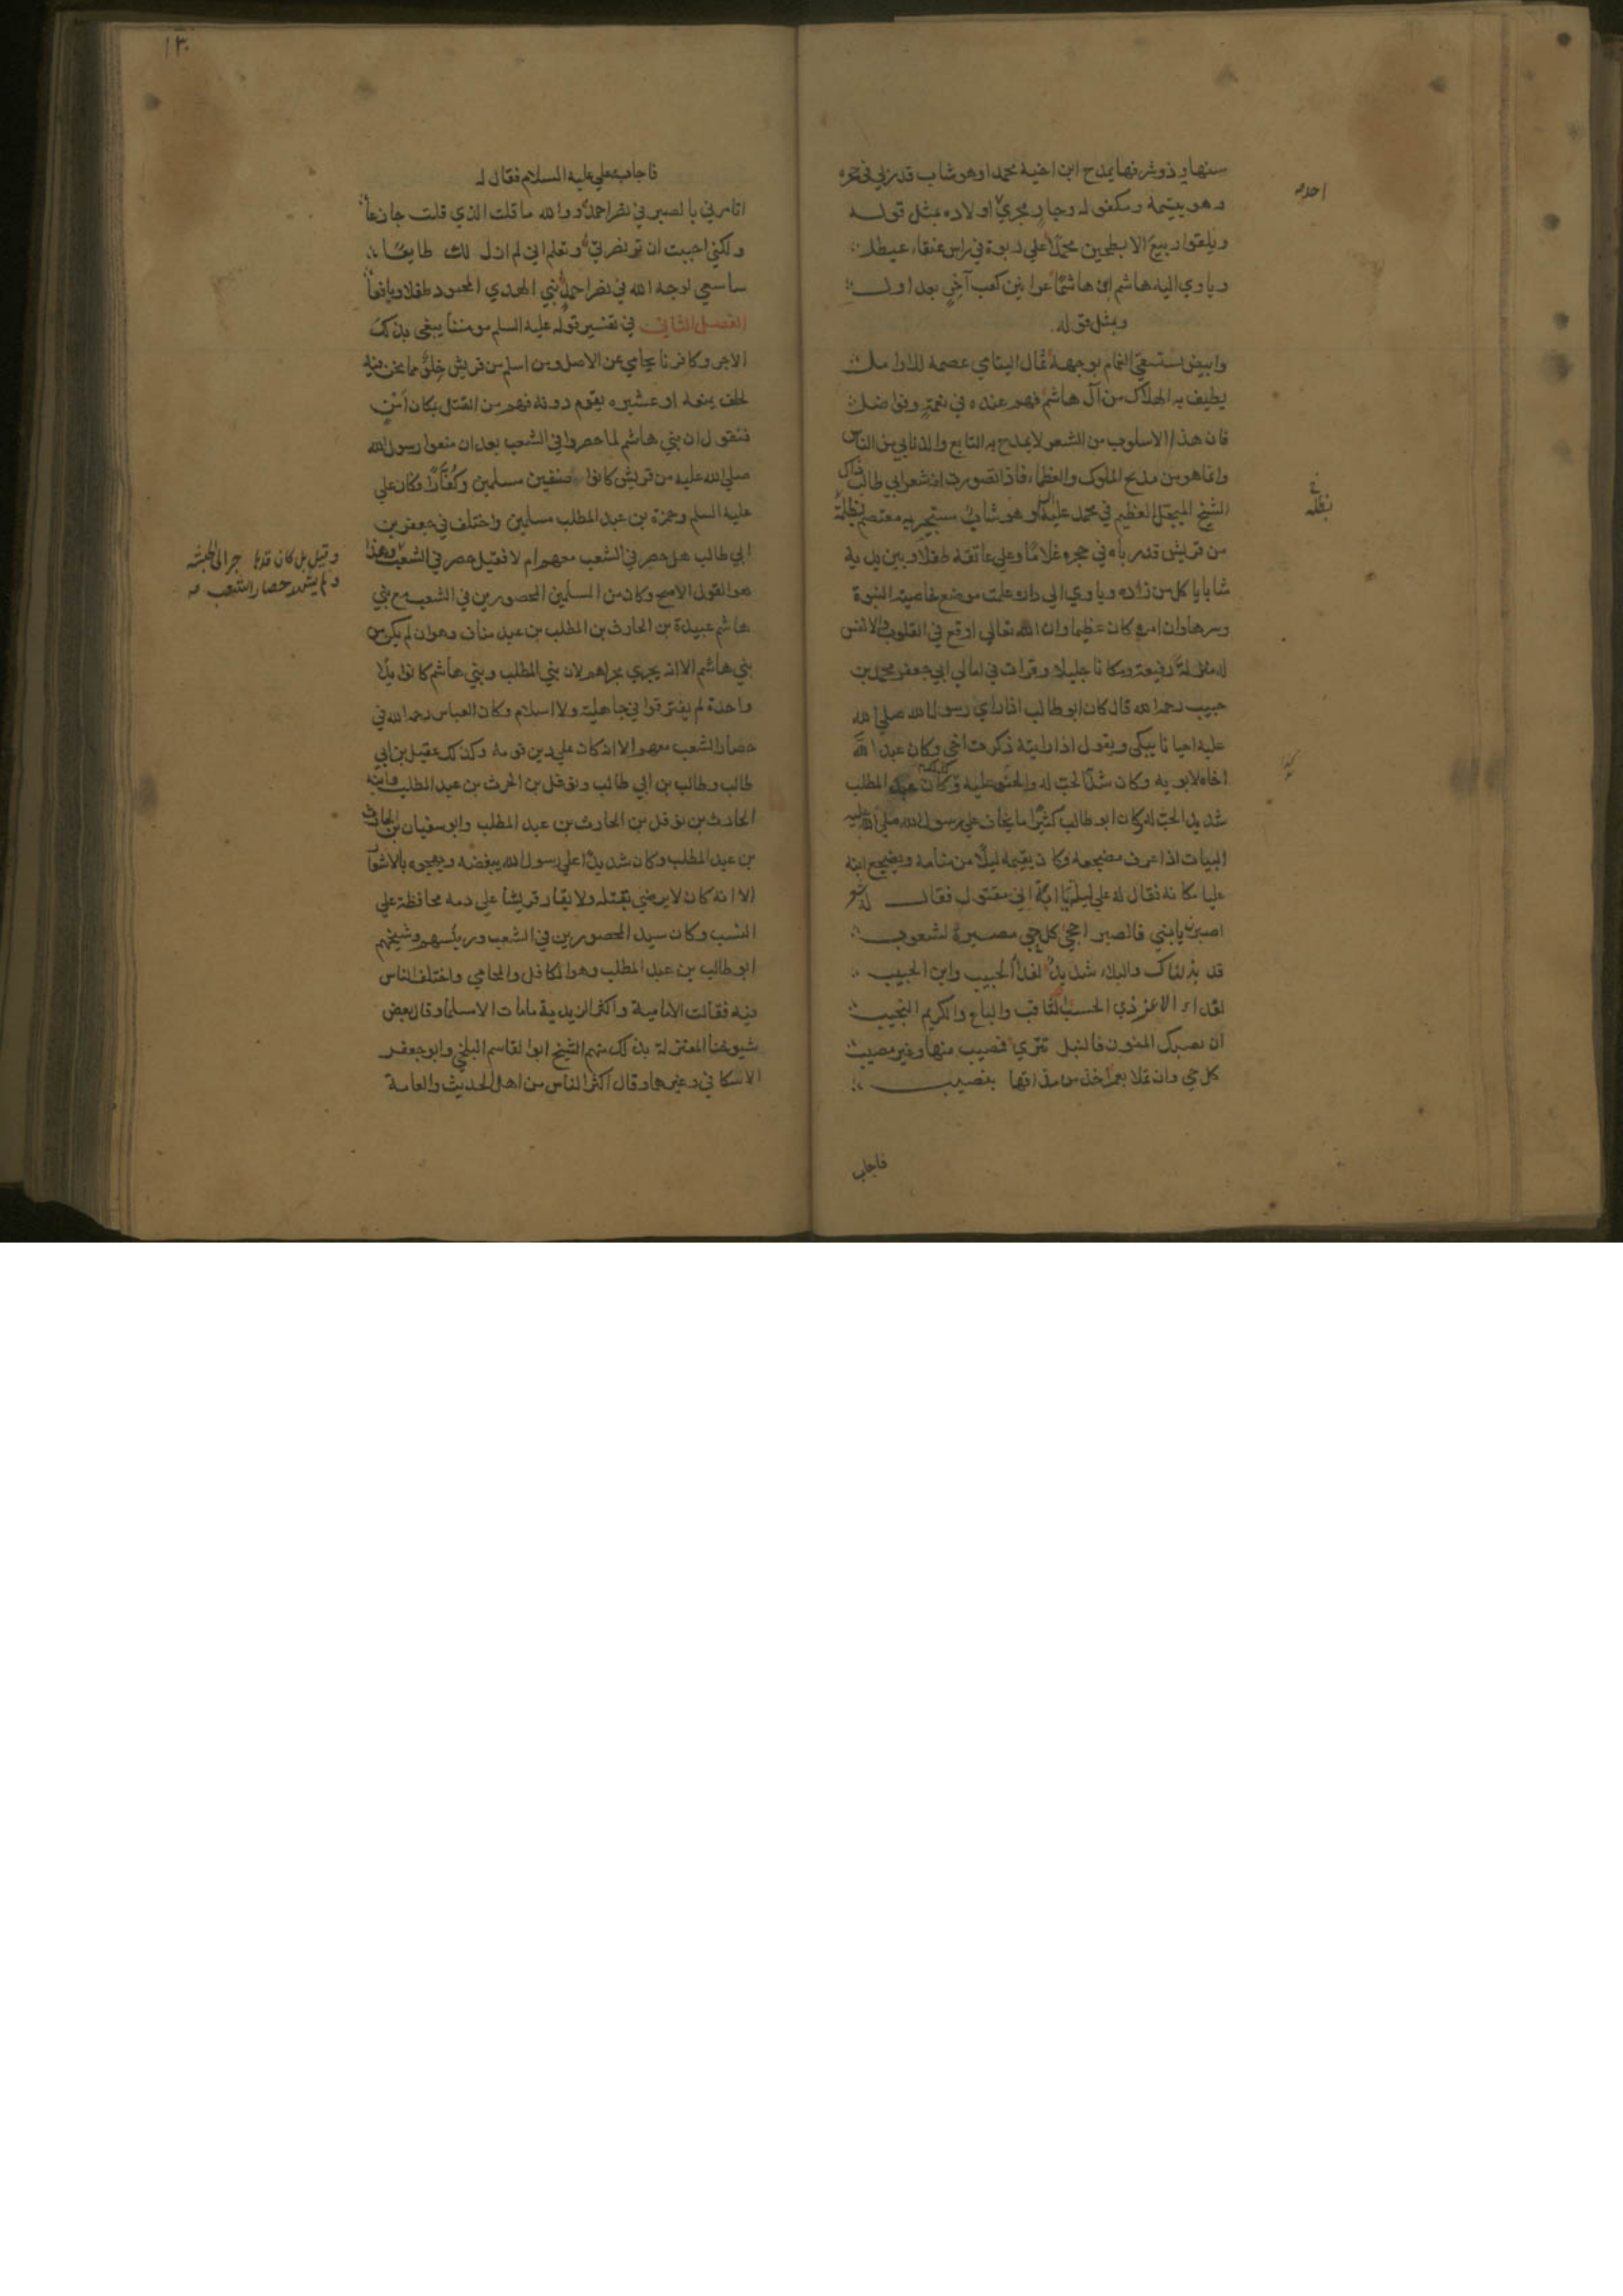 سنها وذو شرفها يمدح ابن اخيه محمدا وهو شاب قد ربي في حجره
وهو يتيمه ومكفوله وجار مجري اولاده بمثل قوله
ويلقوا ربيع الابطحين محمدا علي ربوة في راس عنقاء عيطل
وياوي اليه هاشم ان هاشما عرانين كعب آخر بعد اول
وبمثل قوله
وابيض يستسقي الغمام بوجهه ثمال اليتامي عصمة للارامل
يطيف به الهلاك من آل هاشم فهم عنده في نعمة وفواضل
فان هذا الاسلوب من الشعر لا يمدح به التابع والذنابي من الناس
وانما هو من مديح الملوك والعظماء فاذا تصورت انه شعر ابي طالب ذاك
الشيخ المبجل العظيم في محمد عليه وهو شاب مستجير به معتصم بظله
من قريش قد رباه في حجره غلاما وعلي عاتقه طفلا وبين يديه
شابا ياكل من زاده وياوي الي داره علمت موضع خاصية النبوة
وسرها وان امره كان عظيما وان الله تعالي اوقع في القلوب والانفس
له منزلة رفيعة ومكانا جليلا وقرات في امالي ابي جعفر محمد بن
حبيب رحمه الله قال كان ابو طالب اذا راي رسول الله صلي الله
عليه احيانا يبكي ويقول اذا رايته ذكرت اخي وكان عبد الله
اخاه لابويه وكان شديد الحب له والحنو عليه وكان عبد المطلب
شديد الحب له وكان ابو طالب كثيرا ما يخاف علي رسول الله صلي الله عليه
البيات اذا عرف مضجعه وكان يقيمه ليلا من منامه ويضجع ابنه
عليا مكانه فقال له علي ليلة يا ابة اني مقتول فقال له شعر
اصبرن يا بني فالصبر احجي كل حي مصيره لشعوب
قد بذلناك والبلاء شديد لفداء الحبيب وابن الحبيب
لفداء الاعز ذي الحسب الثاقب والباع والكريم النجيب
ان تصبك المنون فالنبل تتري فمصيب منها وغير مصيب
كل حي وان تملا بعمر اخذ من مذاقها بنصيب
فاجاب
احد
بظله
١٣٠
فاجابه علي عليه السلام فقال له
اتامرني بالصبر في نصر احمد ووالله ما قلت الذي قلت جازعا
ولكنني احببت ان تر نصرتي وتعلم اني لم ازل لك طايعا
ساسعي لوجه الله في نصر احمد نبي الهدي المحمود طفلا ويافعا
الفصل الثاني في تفسير قوله عليه السلم مومننا يبغي بذلك
الاجر وكافرنا يحامي عن الاصل ومن اسلم من قريش خلو مما نحن فيه
لحلف يمنعه او عشيره يقوم دونه فهم من القتل بمكان امن
فنقول ان بني هاشم لما حصروا في الشعب بعد ان منعوا رسول الله
صلي الله عليه من قريش كانوا صنفين مسلمين وكفارا فكان علي
عليه السلم وحمزة بن عبد المطلب مسلمين واختلف في جعفر بن
ابي طالب هل حصر في الشعب معهم ام لا فقيل حصر في الشعب وهذا
هو القول الاصح وكان من المسلمين المحصورين في الشعب مع بني
هاشم عبيدة بن الحارث بن المطلب بن عبد مناف وهو ان لم يكن من
بني هاشم الا انه يجري مجراهم لان بني المطلب وبني هاشم كانوا يدا
واحدة لم يفترقوا في جاهلية ولا اسلام وكان العباس رحمه الله في
حصار الشعب معهم الا انه كان علي دين قومه وكذلك عقيل بن ابي
طالب وطالب بن ابي طالب ونوفل بن الحرث بن عبد المطلب وابنه
الحارث بن نوفل بن الحارث بن عبد المطلب وابو سفيان بن الحارث
بن عبد المطلب وكان شديدا علي رسول الله يبغضه ويهجوه بالاشعار
الا انه كان لا يرضي بقتله ولا يقار قريشا علي دمه محافظة علي
النسب وكان سيد المحصورين في الشعب ورييسهم وشيخهم
ابو طالب بن عبد المطلب وهو الكافل والمحامي واختلف الناس
فيه فقالت الامامية واكثر الزيدية ما مات الا مسلما وقال بعض
شيوخنا المعتزلة بذلك منهم الشيخ ابو القاسم البلخي وابو جعفر
الاسكافي وغيرهما وقال اكثر الناس من اهل الحديث والعامة
وقيل بل كان قد هاجر الي الحبشه
ولم يشهد حصار الشعب